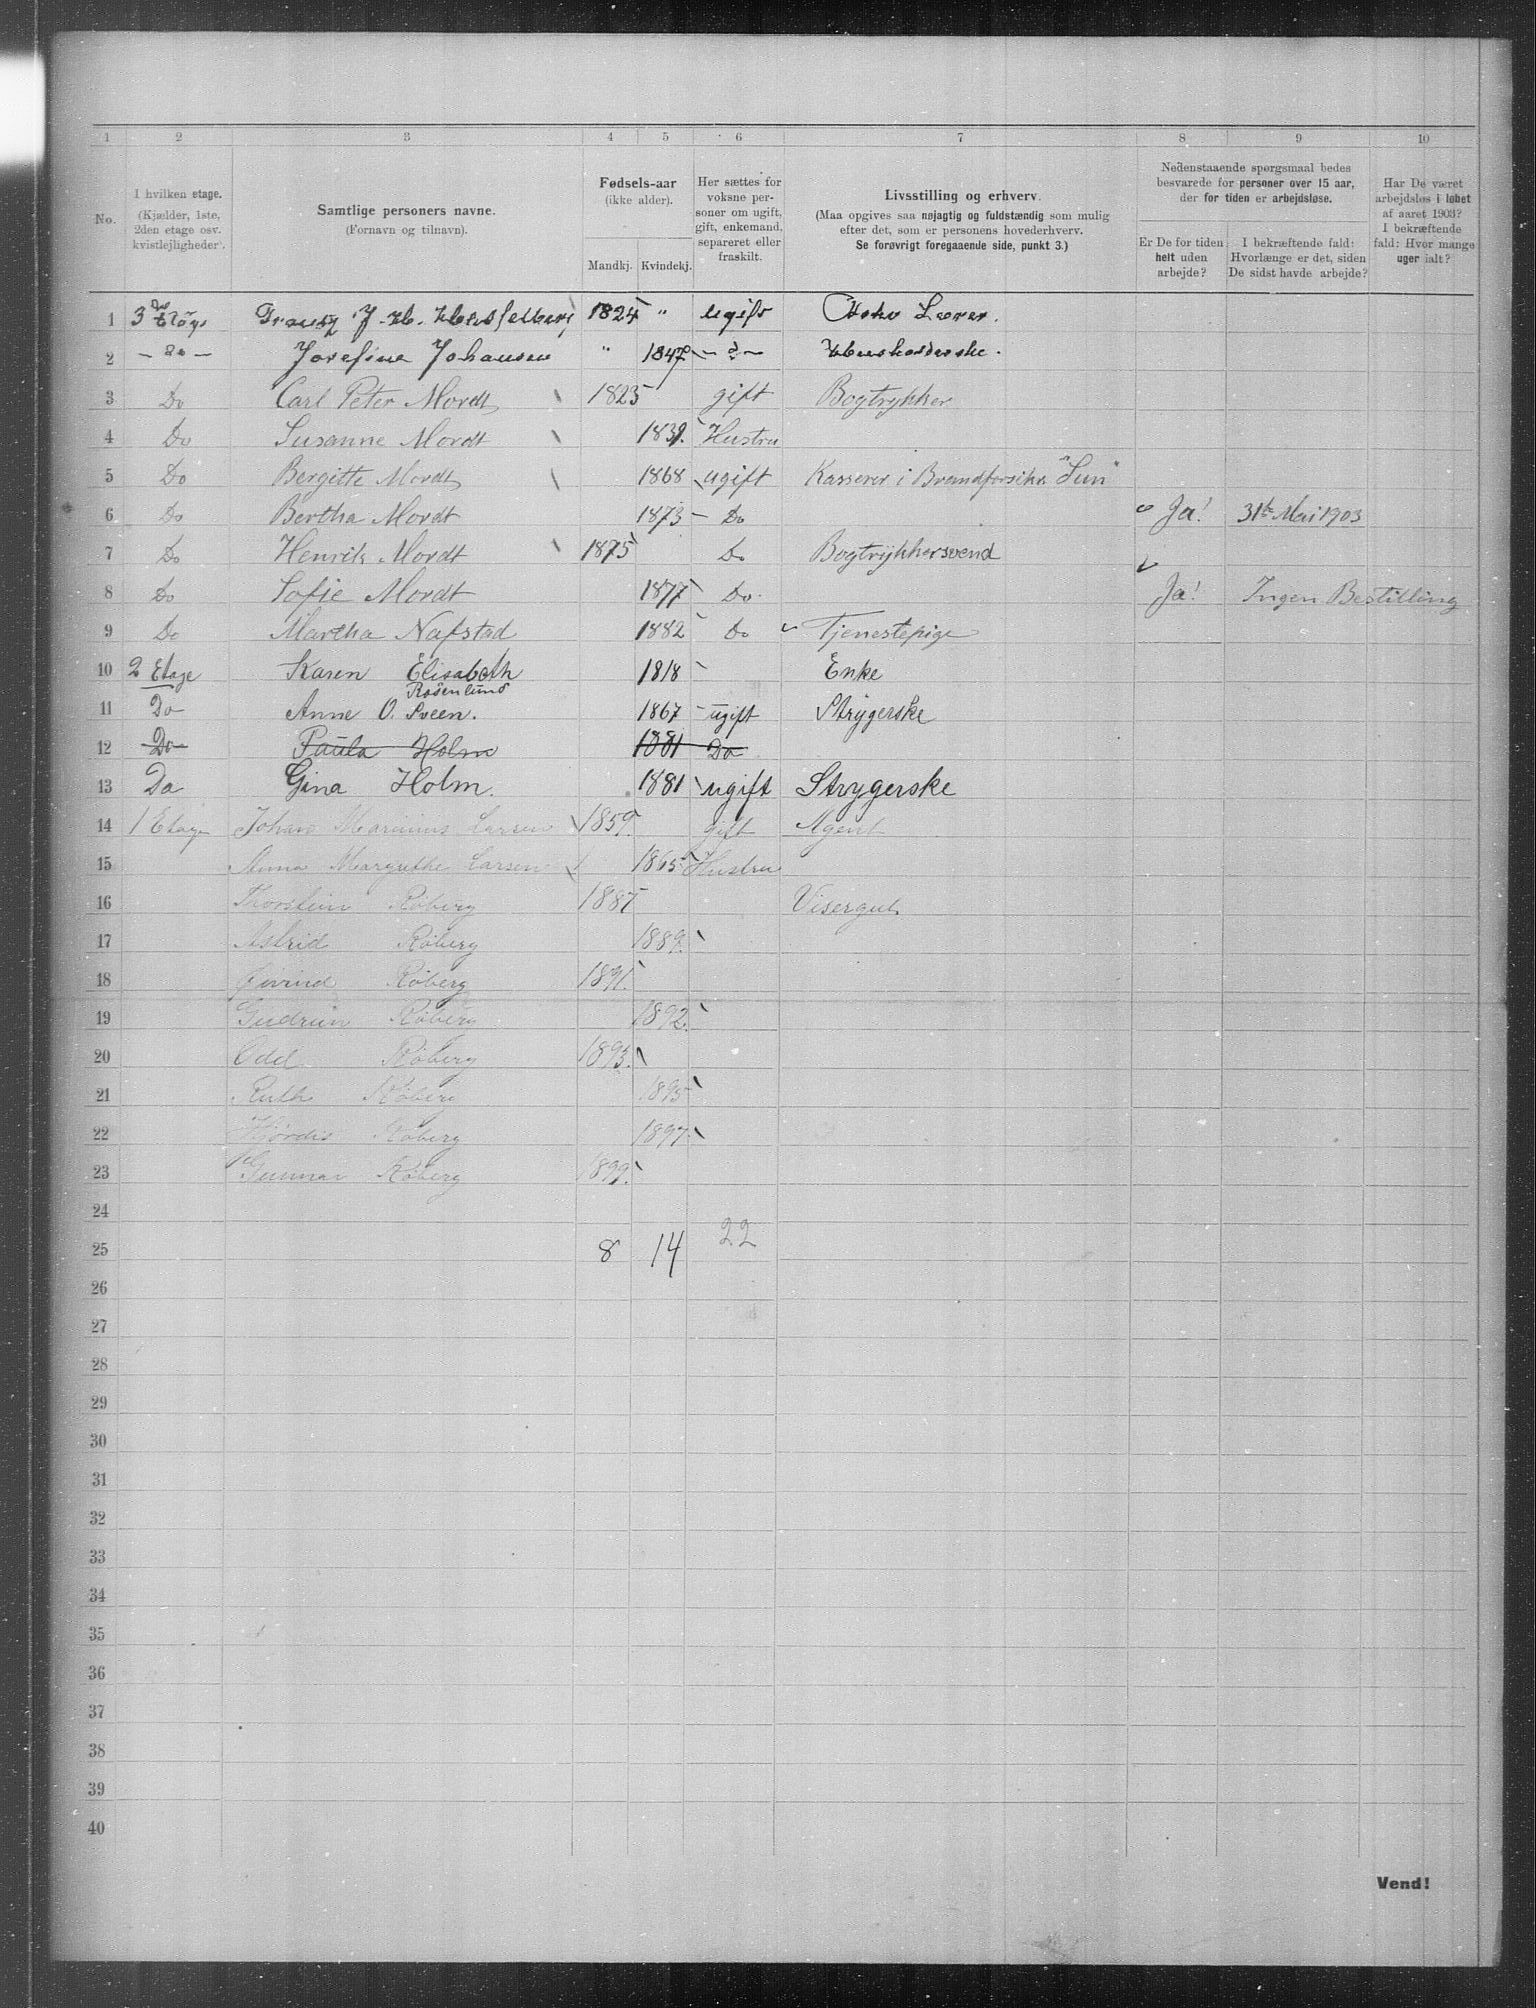 1 2 3 4 5 6 7 8 9 10
No.
I hvilken etage.
(Kjælder, 1ste,
2den etage osv.
kvistlejligheder).
Samtlige personers navne.
(Fornavn og tilnavn).
Fødsels-aar
(ikke alder).
Mandkj. Kvindekj.
Her sættes for
voksne per-
soner om ugift,
gift, enkemand,
separeret eller
fraskilt.
Livsstilling og erhverv.
(Maa opgives saa nøjagtig og fuldstændig som mulig
efter det, som er personens hovederhverv.
Se forøvrigt foregaaende side, punkt 3.)
Nedenstaaende spørgsmaal bedes
besvarede for personer over 15 aar,
der for tiden er arbejdsløse.
Er De for tiden
helt uden
arbejde?
I bekræftende fald:
Hvorlænge er det, siden
De sidst havde arbejde?
Har De været
arbejdsløs i løbet
af aaret 1903?
I bekræftende
fald: Hvor mange
uger ialt?
1 3 Etage J. H. Hesselberg 1824 " ugift Lærer.
2 - Do - Josefine Johansen " 1847 - d - Husholderske.
3 Do Carl Peter Mordt 1825 gift Bogtrykker
4 Do Susanne Mordt 1839. Hustru
5 Do Bergitte Mordt 1868 ugift Kasserer i Brandforsikr. "Sun"
6 Do Bertha Mordt 1873 - Do Ja! 31te Mai 1903
7 Do Henrik Mordt 1875 Do Bogtrykkersvend
8 Do Sofie Mordt 1877 Do. Ja! Ingen Bestilling
9 Do Martha Nafstad 1882 Do Tjenestepige
10 2 Etage Karen Elisabeth 1818 Enke
Rosenlund
11 Do Anne O. Sveen. 1867 ugift Strygerske
12 Do Paula Holm 1881 Do
13 Do Gina Holm. 1881 ugift Strygerske
14 1 Etage Johan Marinius Larsen 1859. gift Agent
15 Anna Margrethe Larsen 1865 Hustru
16 Thorstein Røberg 1887 Visergut
17 Astrid Røberg 1889.
18 Øivind Røberg 1891.
19 Gudrun Røberg 1892.
20 Odd Røberg 1893.
21 Ruth Røberg 1895
22 Hjørdis Røberg 1897.
23 Gunnar Røberg 1899.
24
25 8 14 22
26
27
28
29
30
31
32
33
34
35
36
37
38
39
40
Vend!